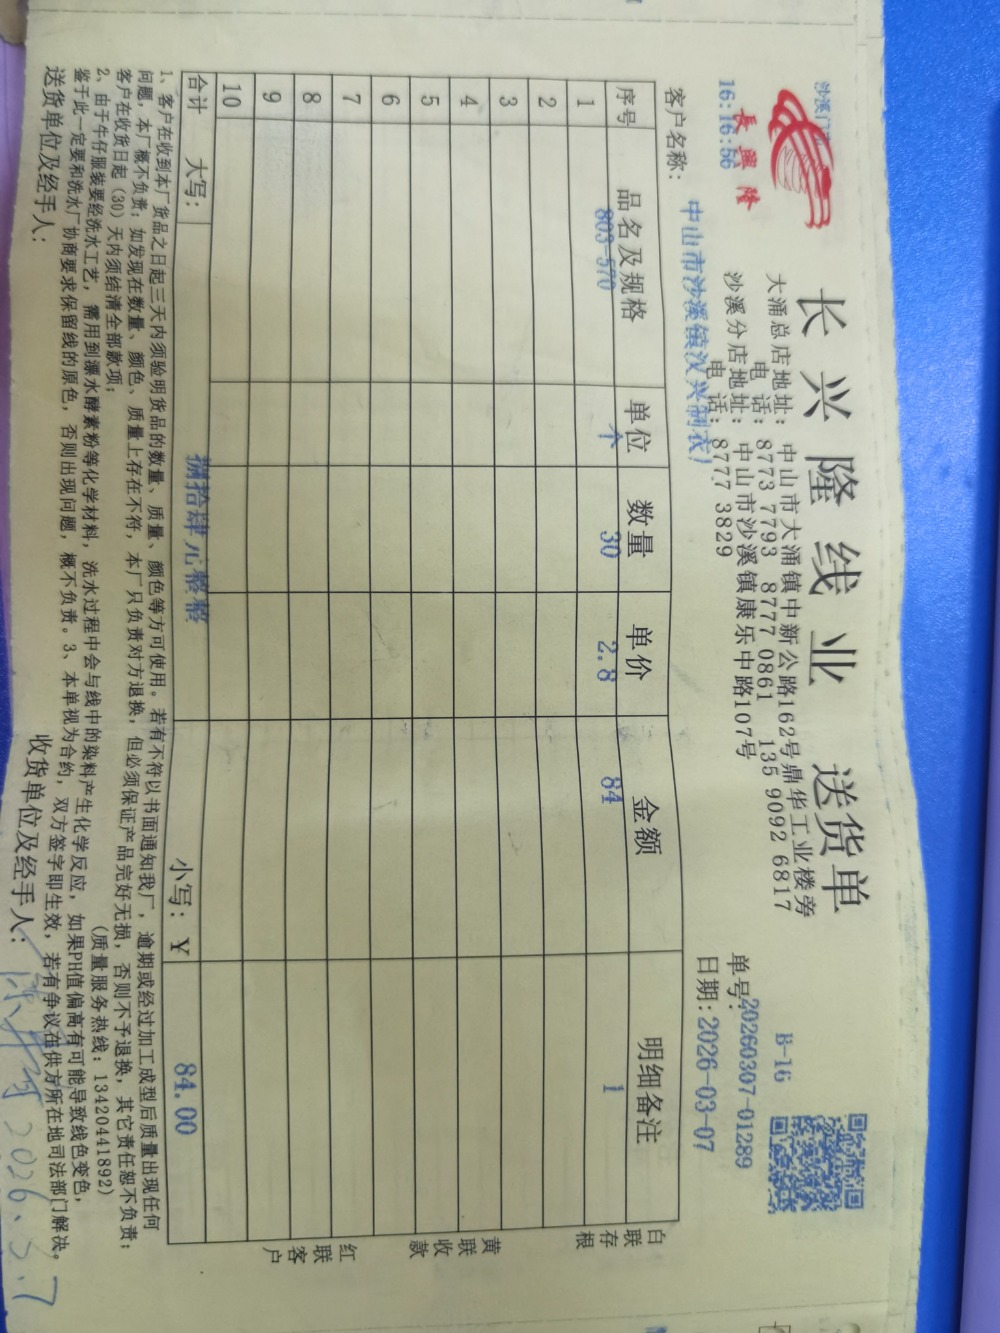 沙溪门
長興隆
16:16:56
长兴隆线业 送货单
大涌总店地址：中山市大涌镇中新公路162号鼎华工业楼旁
电话：8773 7793 8777 0861 135 9092 6817
沙溪分店地址：中山市沙溪镇康乐中路107号
电话：8777 3829
B-16
单号：20260307-01289
日期：2026-03-07
客户名称：中山市沙溪镇汉兴制衣厂
序号 品名及规格 单位 数量 单价 金额 明细备注
1 803-570 个 30 2.8 84 1
2
3
4
5
6
7
8
9
10
合计 大写： 捌拾肆元整整 小写：￥ 84.00
白联存根
黄联收款
红联客户
1、客户在收到本厂货品之日起三天内须验明货品的数量、质量、颜色等方可使用。若有不符以书面通知我厂，逾期或经过加工成型后质量出现任何
问题，本厂概不负责；如发现在数量、颜色、质量上存在不符，本厂只负责对方退换，但必须保证产品完好无损，否则不予退换，其它责任恕不负责；
客户在收货日起（30）天内须结清全部款项； （质量服务热线：13420441892）
2、由于牛仔服装要经洗水工艺，需用到漂水酵素粉等化学材料，洗水过程中会与线中的染料产生化学反应，如果PH值偏高有可能导致线色变色，
鉴于此一定要和洗水厂协商要求保留线的原色，否则出现问题，概不负责。3、本单视为合约，双方签字即生效，若有争议在供方所在地司法部门解决。
送货单位及经手人： 收货单位及经手人：
2026.3.7